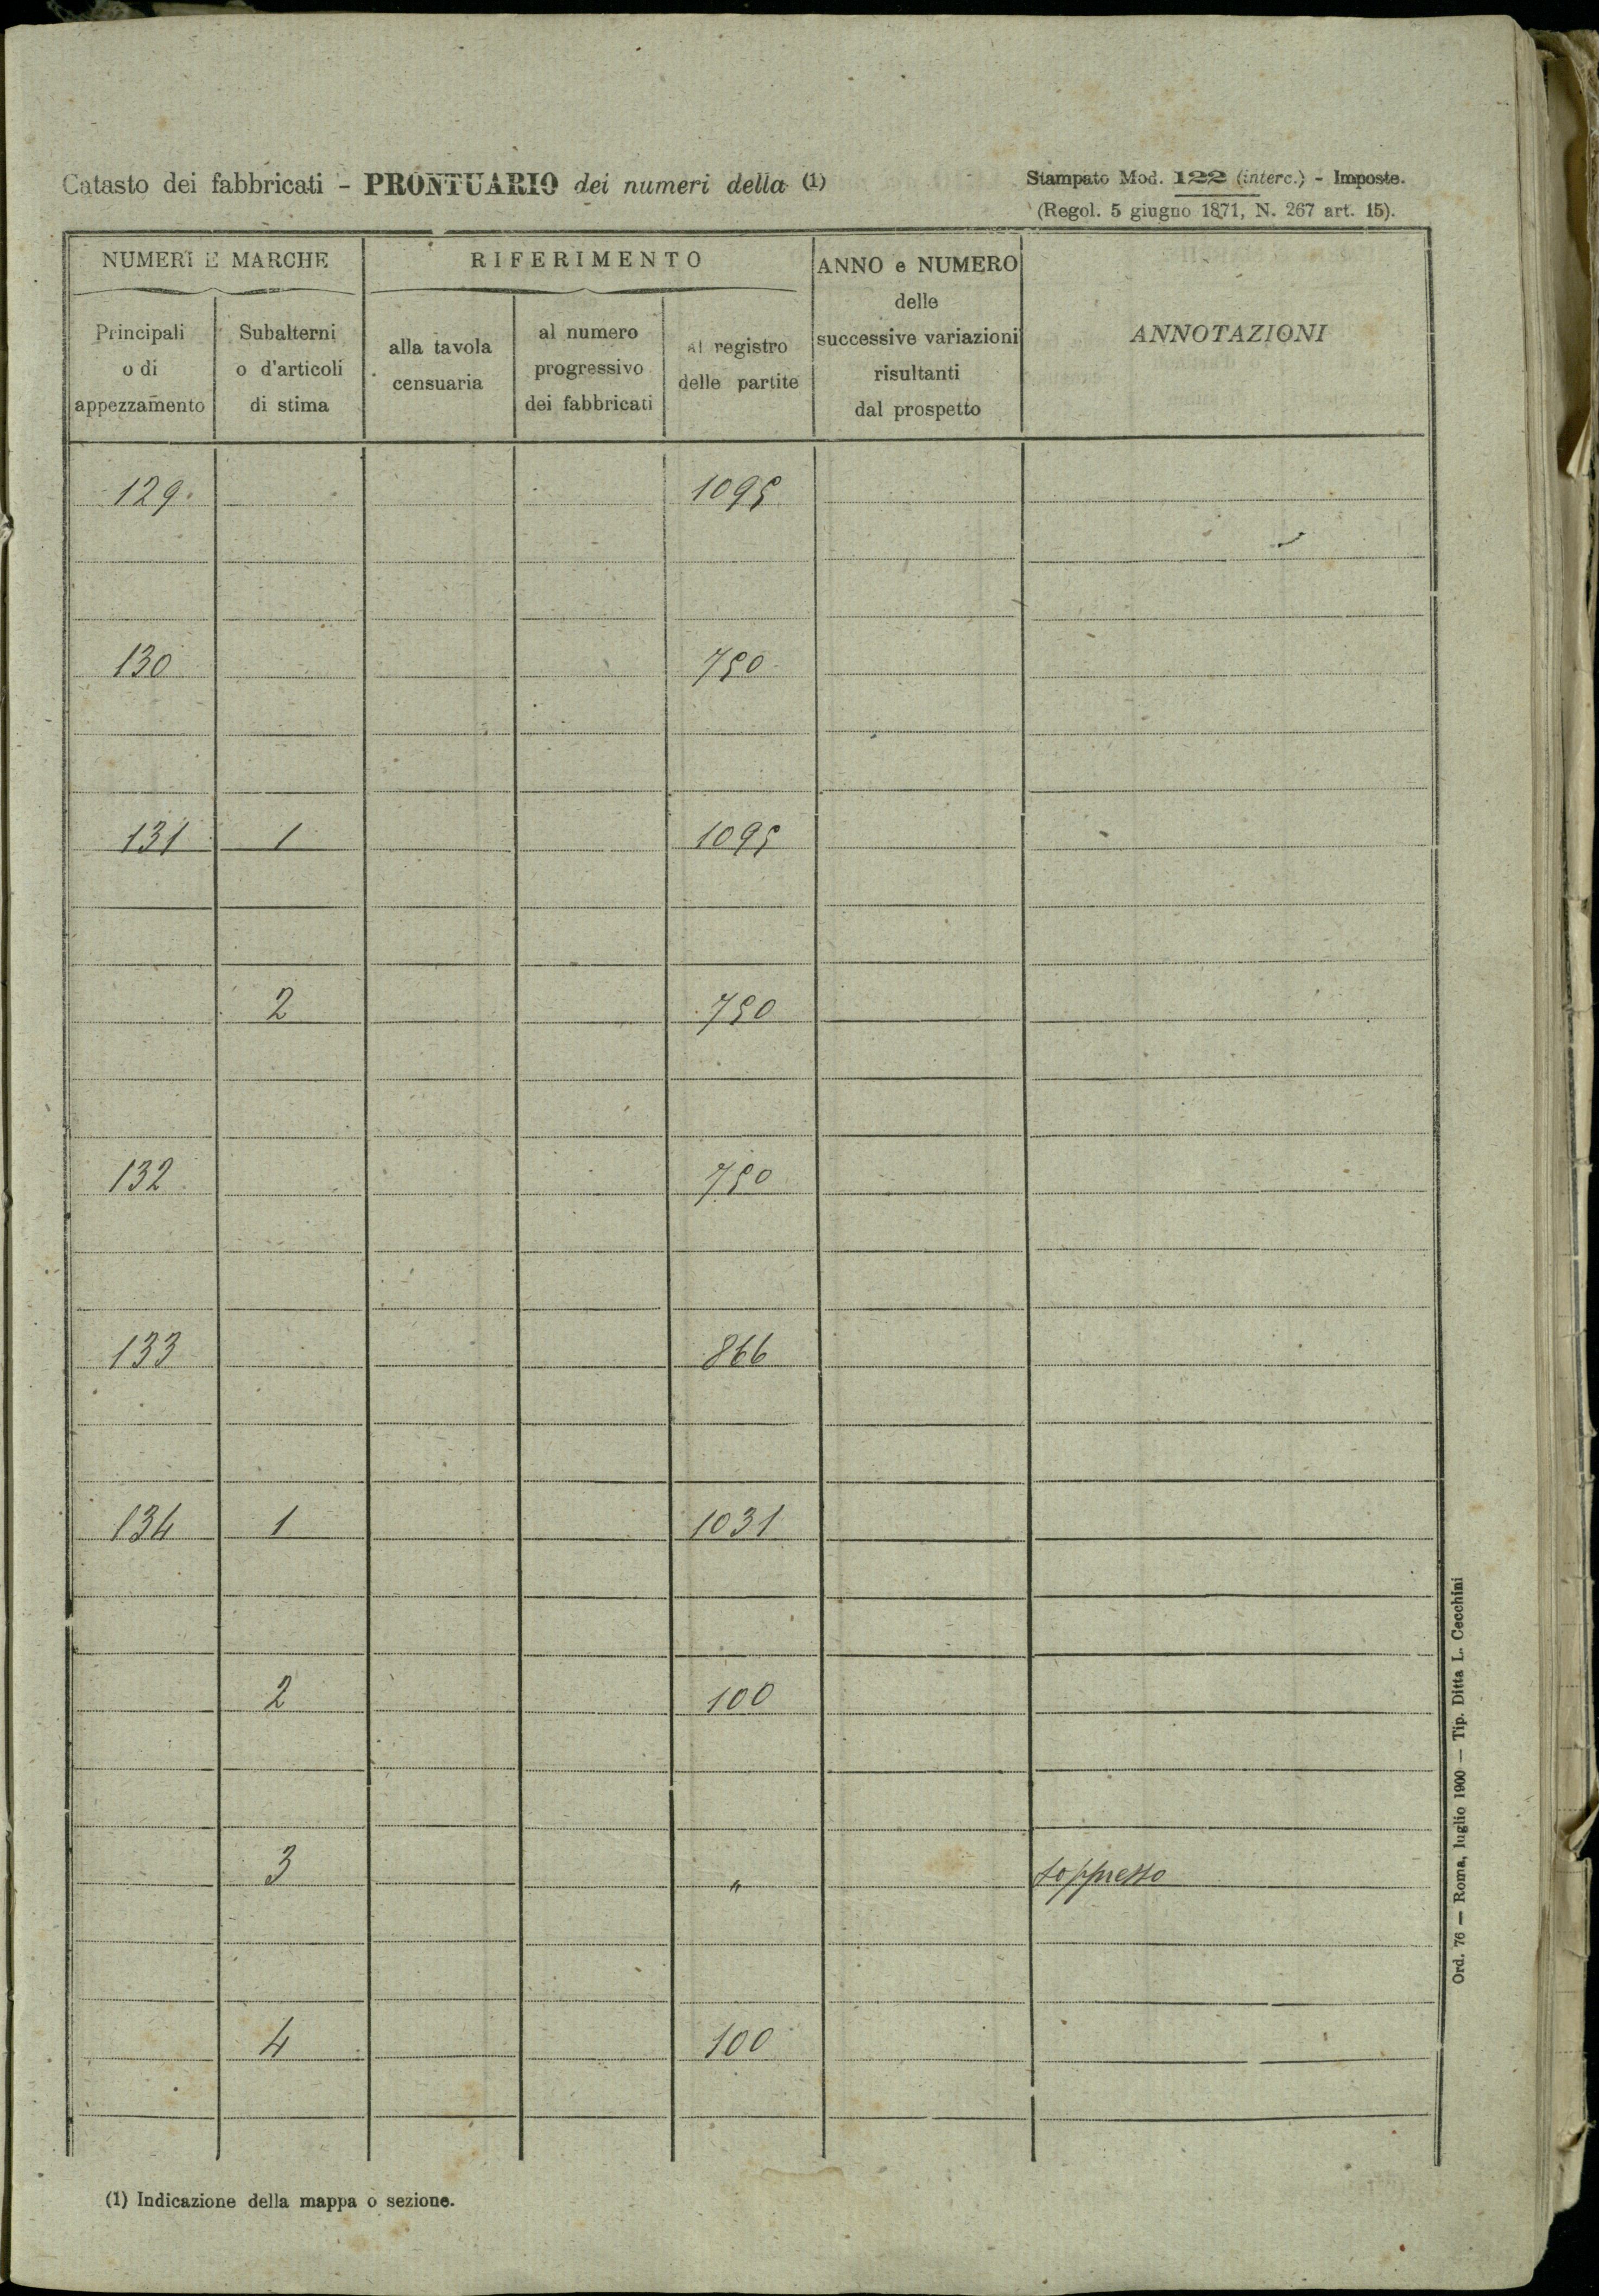 Catasto dei fabbricati - PRONTUARIO dei numeri della (1)
Stampato Mod. 122 (interc.) - Imposte.
(Regol. 5 giugno 1871, N. 267 art. 15).
NUMERI E MARCHE
RIFERIMENTO
ANNO e NUMERO
delle
successive variazioni
risultanti
dal prospetto
ANNOTAZIONI
Principali
o di
appezzamento
Subalterni
o d'articoli
di stima
alla tavola
censuaria
al numero
progressivo
dei fabbricati
al registro
delle partite
129 1095
130 750
131 1 1095
2 750
132 750
133 866
134 1 1031
2 100
3 " soppresso
4 100
Ord. 76 — Roma, luglio 1900 — Tip. Ditta L. Cecchini
(1) Indicazione della mappa o sezione.